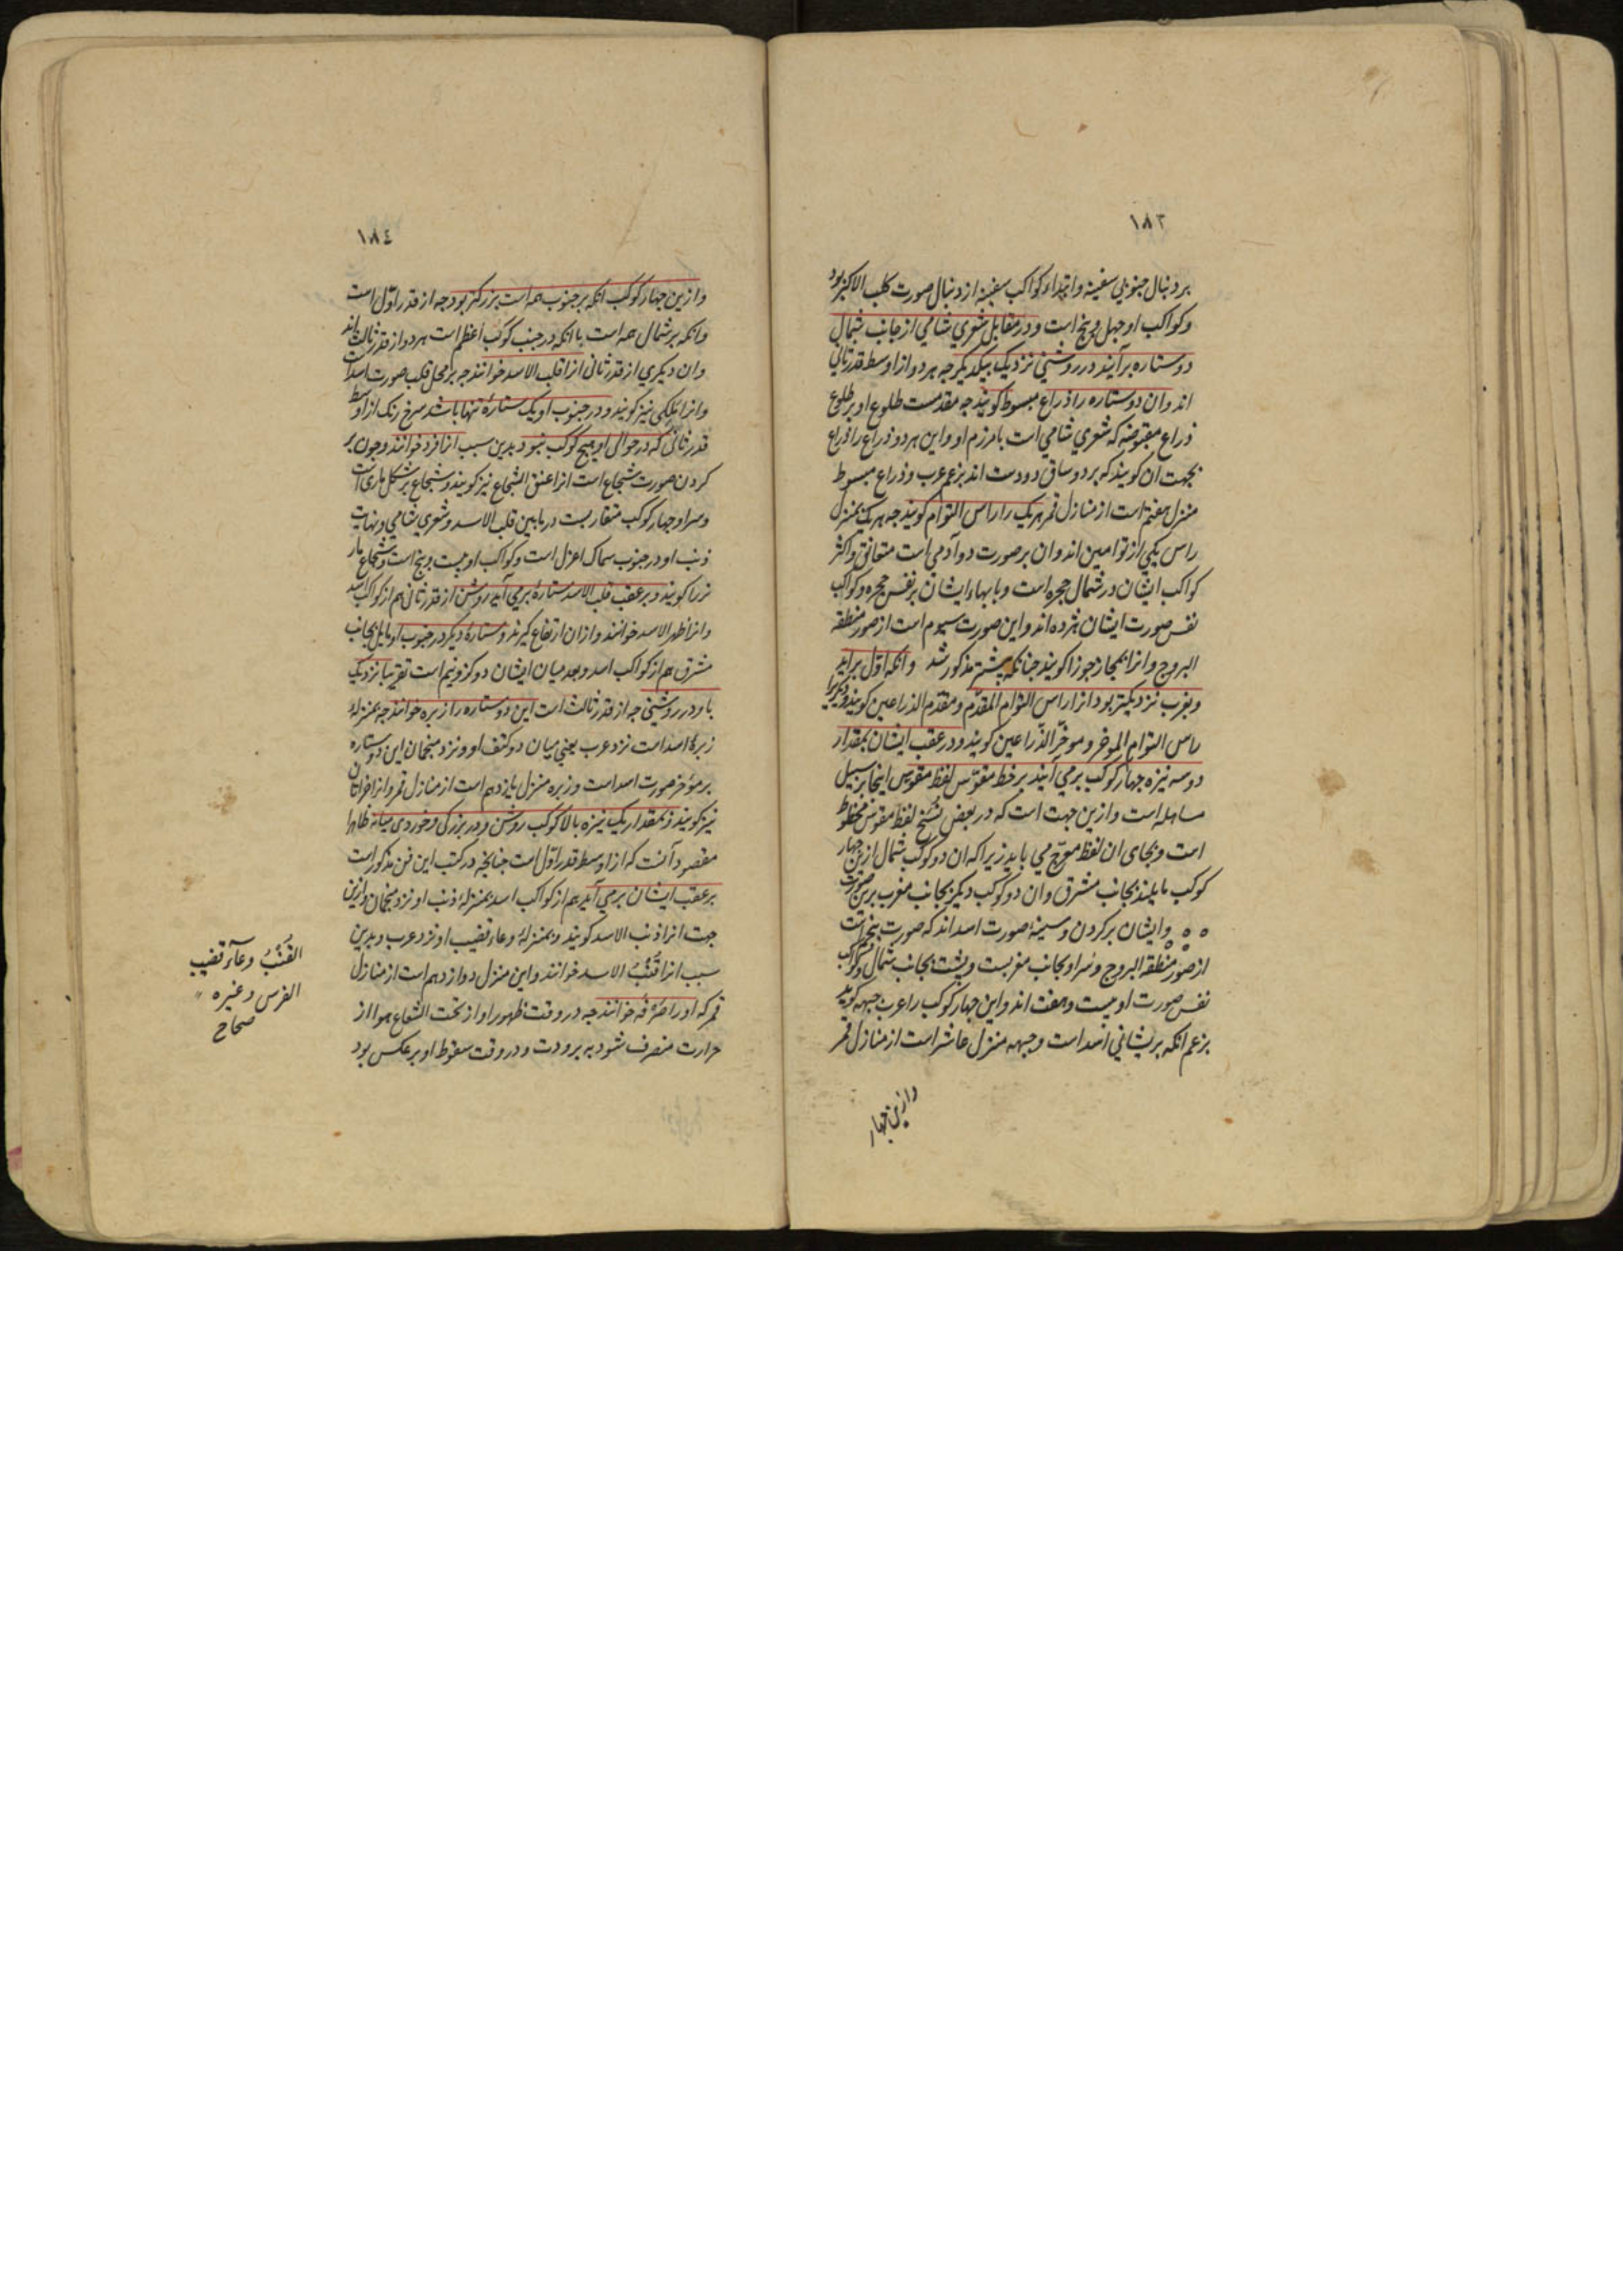 ١٨٣
بر دنبال جنوبی سفینه و ابتداء کواکب سفینه از دنبال صورت کلب الاکبر بود
و کواکب او چهل و پنج است و در مقابل شعری شامی از جانب شمال
دو ستاره برآیند در روشنی نزدیک بیکدیکر چه هر دو از اوسط قدر ثانی
اند و ان دو ستاره را ذراع مبسوط کویند چه مقدمست طلوع او بر طلوع
ذراع مقبوضه که شعری شامی است با مرزم او و این هر دو ذراع را ذراع
بجهت ان کویند که بر دو ساق دو دست اند بزعم عرب و ذراع مبسوط
منزل هفتم است از منازل قمر هریک را راس التوام کویند چه هر یک بمنزل
راس یکی از توامین اند و ان بر صورت دو آدمی است متعانق و اکثر
کواکب ایشان در شمال مجره است و پایهاء ایشان بر نفس مجره و کواکب
نفس صورت ایشان هژده اند و این صورت سیوم است از صور منطقه
البروج و انرا بمجاز جوزا کویند چنانکه پیشتر مذکور شد و انکه اول براید
و بغرب نزدیکتر بود انرا راس التوام المقدم و مقدم الذراعین کویند و دیکر را
راس التوام الموخر و موخر الذراعین کویند و در عقب ایشان بمقدار
دو سه نیزه چهار کوکب برمی آیند بر خط مقوس لفظ مقوس اینجا بر سبیل
مساهله است و ازین جهت است که در بعض نسخ لفظ مقوس مخطوط
است و بجای ان لفظ معوج می باید زیرا که ان دو کوکب شمال ازین چهار
کوکب مایلند بجانب مشرق و ان دو کوکب دیکر بجانب مغرب برین صورت
و ایشان بر کردن و سینهٔ صورت اسد اند که صورت پنجم است
از صور منطقه البروج و سر او بجانب مغربست و پشت بجانب شمال و کواکب
نفس صورت او بیست و هفت اند و این چهار کوکب را عرب جبهه کویند
بزعم انکه بر پیشانی اسد است و جبهه منزل عاشر است از منازل قمر
و ازین چهار
١٨٤
و ازین چهار کوکب انکه بر جنوب همه است بزرکتر بود چه از قدر اول است
و انکه بر شمال همه است با انکه در جنب کوکب اعظم است هر دو از قدر ثالث اند
و ان دیکری از قدر ثانی انرا قلب الاسد خوانند چه بر محل قلب صورت اسد است
و انرا ملکی نیز کویند و در جنوب او یک ستارهٔ تنها باشد سرخ رنک از اوسط
قدر ثانی که در حوالی او هیچ کوکب نبود و بدین سبب انرا فرد خوانند و چون بر
کردن صورت شجاع است انرا عنق الشجاع نیز کویند و شجاع بر شکل ماری است
و سر او چهار کوکب متقاربست در مابین قلب الاسد و شعری شامی و نهایت
ذنب او در جنوب سماک اعزل است و کواکب او بیست و پنج است و شجاع مار
نر را کویند و بر عقب قلب الاسد ستارهٔ برمی آید روشن از قدر ثانی هم از کواکب اسد
و انرا ظهر الاسد خوانند و ازان ارتفاع کیرند و ستارهٔ دیکر در جنوب او مایل بجانب
مشرق هم از کواکب اسد و بعد میان ایشان دو کز و نیم است تقریبا نزدیک
باو در روشنی چه از قدر ثالث است این دو ستاره را زبره خوانند چه بمنزلهٔ
زبرهٔ اسد است نزد عرب یعنی میان دو کتف او و نزد منجمان این دو ستاره
بر مؤخر صورت اسد است و زبره منزل یازدهم است از منازل قمر و انرا خراتان
نیز کویند و بمقدار یک نیزه بالا کوکب روشن و در بزرکی و خوردی میانه ظاهرا
مقصود آنست که از اوسط قدر اول است چنانچه در کتب این فن مذکور است
بر عقب ایشان برمی آید هم از کواکب اسد بمنزلهٔ ذنب او نزد منجمان و ازین
جهت انرا ذنب الاسد کویند و بمنزلهٔ وعاء قضیب او نزد عرب و بدین
سبب انرا قنب الاسد خوانند و این منزل دوازدهم است از منازل
قمر که او را صرفه خوانند چه در وقت ظهور او از تحت الشعاع هوا از
حرارت منصرف شود به برودت و در وقت سقوط او بر عکس بود
القنب وعآء قضیب
الفرس و غیره
صحاح